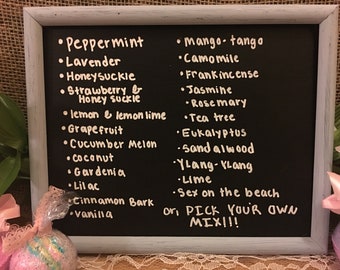 • Peppermint
• Lavender
• Honeysuckle
• Strawberry &
Honey suckle
• lemon & lemon lime
• Grapefruit
• Cucumber Melon
• coconut
• Gardenia
• Lilac
• Cinnamon Bark
• Vanilla
• Mango-tango
• Camomile
• Frankincense
• Jasmine
• Rosemary
• Tea tree
• Eukalyptus
• Sandalwood
• Ylang-Ylang
• Lime
• Sex on the beach
or: PICK YOUR OWN
MIX!!!